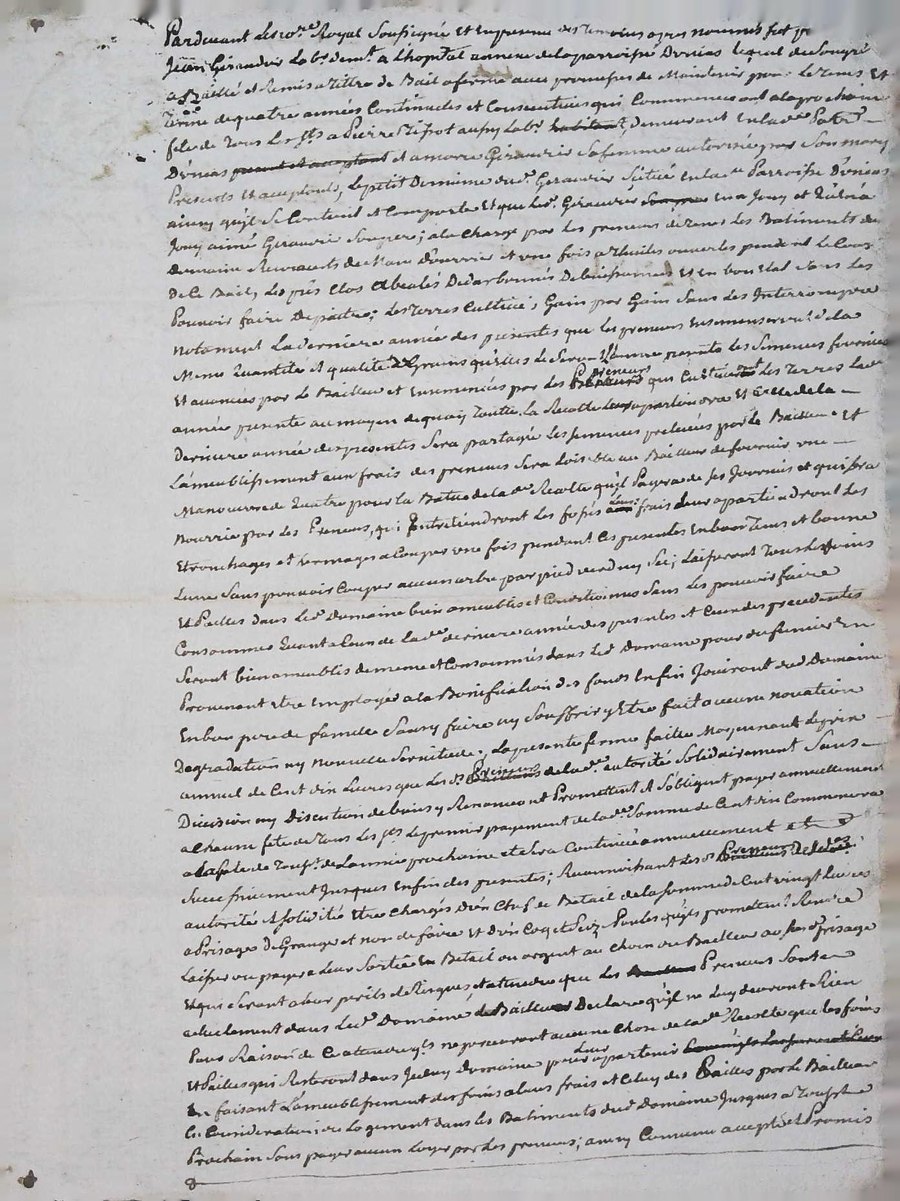 Pardevant Le not.re Royal Soussigné et en presence des temoins apres nommés fut pnt
Jean Giraudier Lab.r dem.t a L'hopital annexe de la parroisse D'enias Lequel de Son gré
a Baillé et Remis a tittre de Bail a ferme avec promesses de Maintenir pour Le tems et
terme de quatre années Continueles et Consecutives qui Commenceront a la prochaine
fete de Tous Les S.ts a Pierre aussy Lab.r habitant, demeurant en lad.e par.sse
D'enias present et acceptant et a marie Giraudier Sa femme autorisée par Son mary
Presents et acceptants, Le petit Domaine dud.t Giraudier Situé en lad.e Parroisse D'enias
ainsy qu'il Se Contient et Comporte et que led.t Giraudier en a Jouy et
Jouy aimé Giraudier ; a la Charge par les preneurs de tenir Les Batiments du
Domaine de Main D'ouvrier et une fois a Thuiles ouvertes pendent Le Cours
De Ce Bail, Les prés Clos et en bon Etat Sans Les
Pouvoir faire Depaitre; Les terres Cultivés Gain par Gain Sans Les Interrompre
notament La derniere année des presentes que les preneurs Ensemenceront de la
Meme quantité et qualité de Grains qu'elles Le Seront L'année presente Les Semences fournies
Et avancées par Le Bailleur et Ensemencées par Les preneurs qui Cultivent Les Terres Lad.e
année presente au moyen de quoy toutte La Recolte leur apartiendra et Celle de la
Derniere année des presentes Sera partagée Les semences prelevées par Le Bailleur et
L'ameublissement aux frais des preneurs Sera Loisible au Bailleur de fournir une
Manoeuvre de quatre pour La Batue de la de. Recolte qu'il Payera de Ses Journées et qui Sera
nourrie par Les Preneurs, qui Entretiendront Les fossés a Leurs frais Leur apartiendront Les
Etronchages et Hermages a Couper une fois pendant Ces presentes En bon Tems et bonne
Lune Sans pouvoir Couper aucun arbre par pied verd ny Sec; Laisseront Tous Les foins
Et Pailles dans Led.t Domaine bien ameublis et Conditionnés Sans Les pouvoir faire
Consommer Quant a Ceux de La d.e derniere année des presentes et Ceux des precedentes
Seront bien ameublis de meme et Consommés dans Led.t Domaine pour du fumier En
Provenant Etre Employé a la Bonification des fonds Enfin Jouiront dud.t Domaine
En bon pere de famille Sans y faire ny Souffrir y Etre fait aucune novation
Degradation ny nouvelle Servitude. La presente ferme faitte Moyennant Le prix
annuel de Cent dix Livres que Les d.s Preneurs de la de. autorité Solidairement Sans
Division ny discution de biens y Renonceant Promettent et S'obligent payer annuellement
a Chaune fete de Tous Les S.ts Le premier payement de la d.e Somme de Cent dix Commencera
a la fete de Touss.ts de L'année prochaine et Sera Continué annuellement et
Successivement Jusques Enfin des presentes; Reconnoissant Les d.s Preneurs
autorité et solidité Etre Chargés D'un Chef de Betail de la somme de Cent vingt Livres
a Prisages De Granger et non de foire et D'un Coq et Six Poules qu'ils promettent Rendre
Laisser ou payer a Leur Sortie En Betail ou argent au Choix du Bailleur au prisage
Et qui Seront a Leur perils et Risques, et attendu que Les Preneurs Sont
actuelement dans Led.t Domaine, Le Bailleur Declare qu'il ne Luy devront Rien
Pour Raison de Ce attendu qu'ils ne percevront aucune Chose de la de. Recolte que les foins
Et Pailles qui Resteront dans Iceluy Domaine pour leur apartenir
En faisant L'ameublissement des foins a leurs frais et Celuy des Pailles par Le Bailleur
En Consideration du Logement dans les Batiments dud.t Domaine Jusques a Touss.ts
Prochain Sans payer aucun Loyer par Les preneurs; ainsy Convenu accepté et Promis